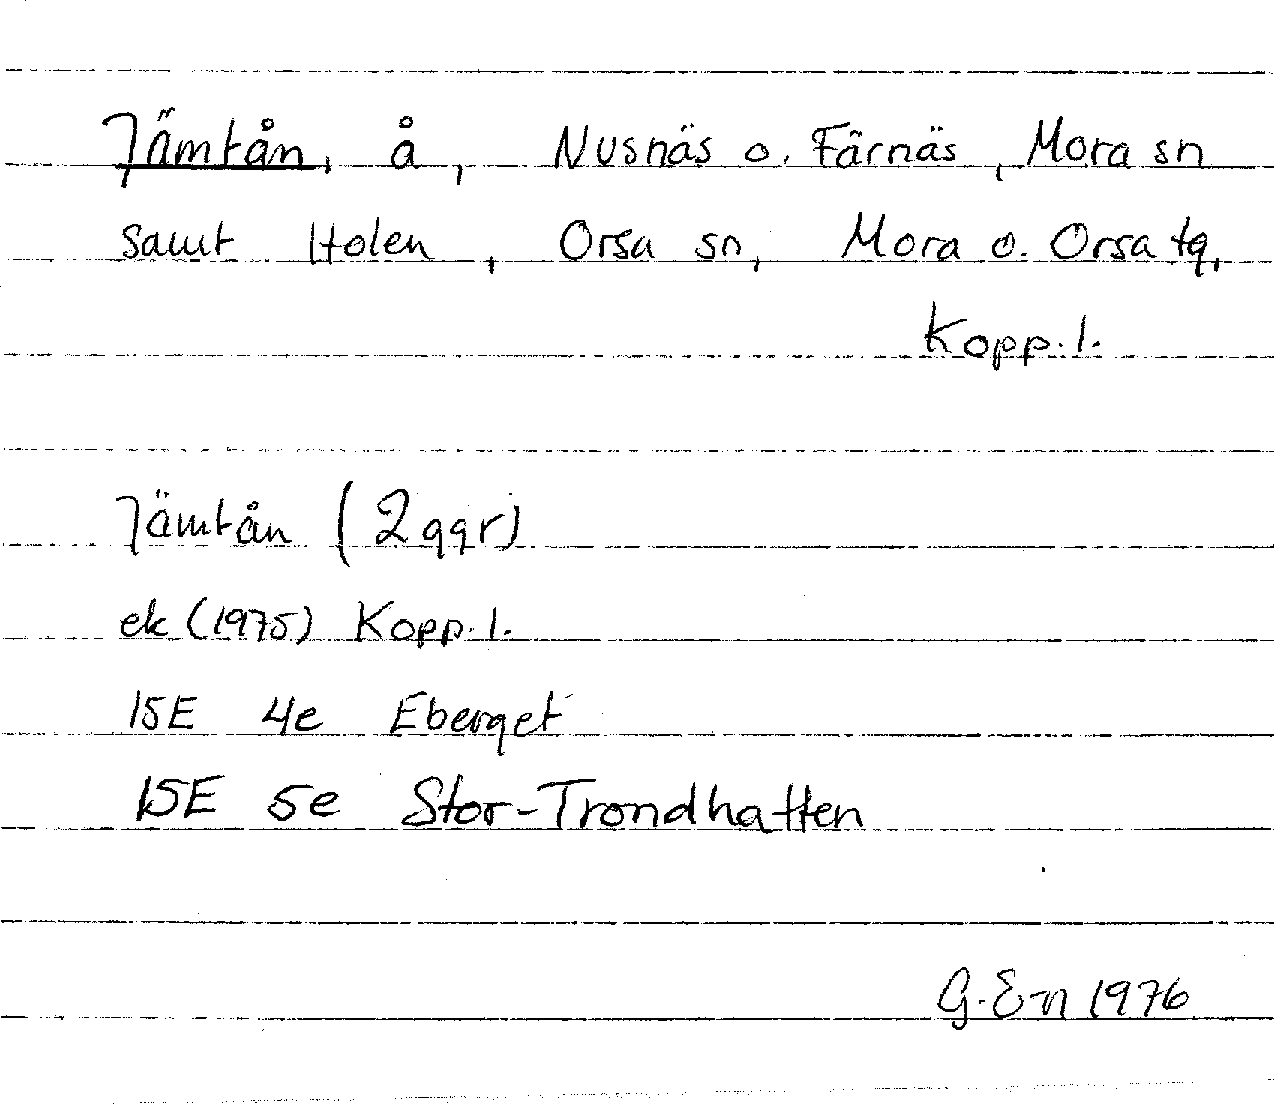 Jämtån, å, Nusnäs o. Färnäs, Mora sn
samt Holen, Orsa sn, Mora o. Orsa tg,
Kopp. l.
Jämtån (2 ggr)
ek (1975) Kopp. l.
15E 4e Eberget
15E 5e Stor-Trondhatten
G. E-n 1976